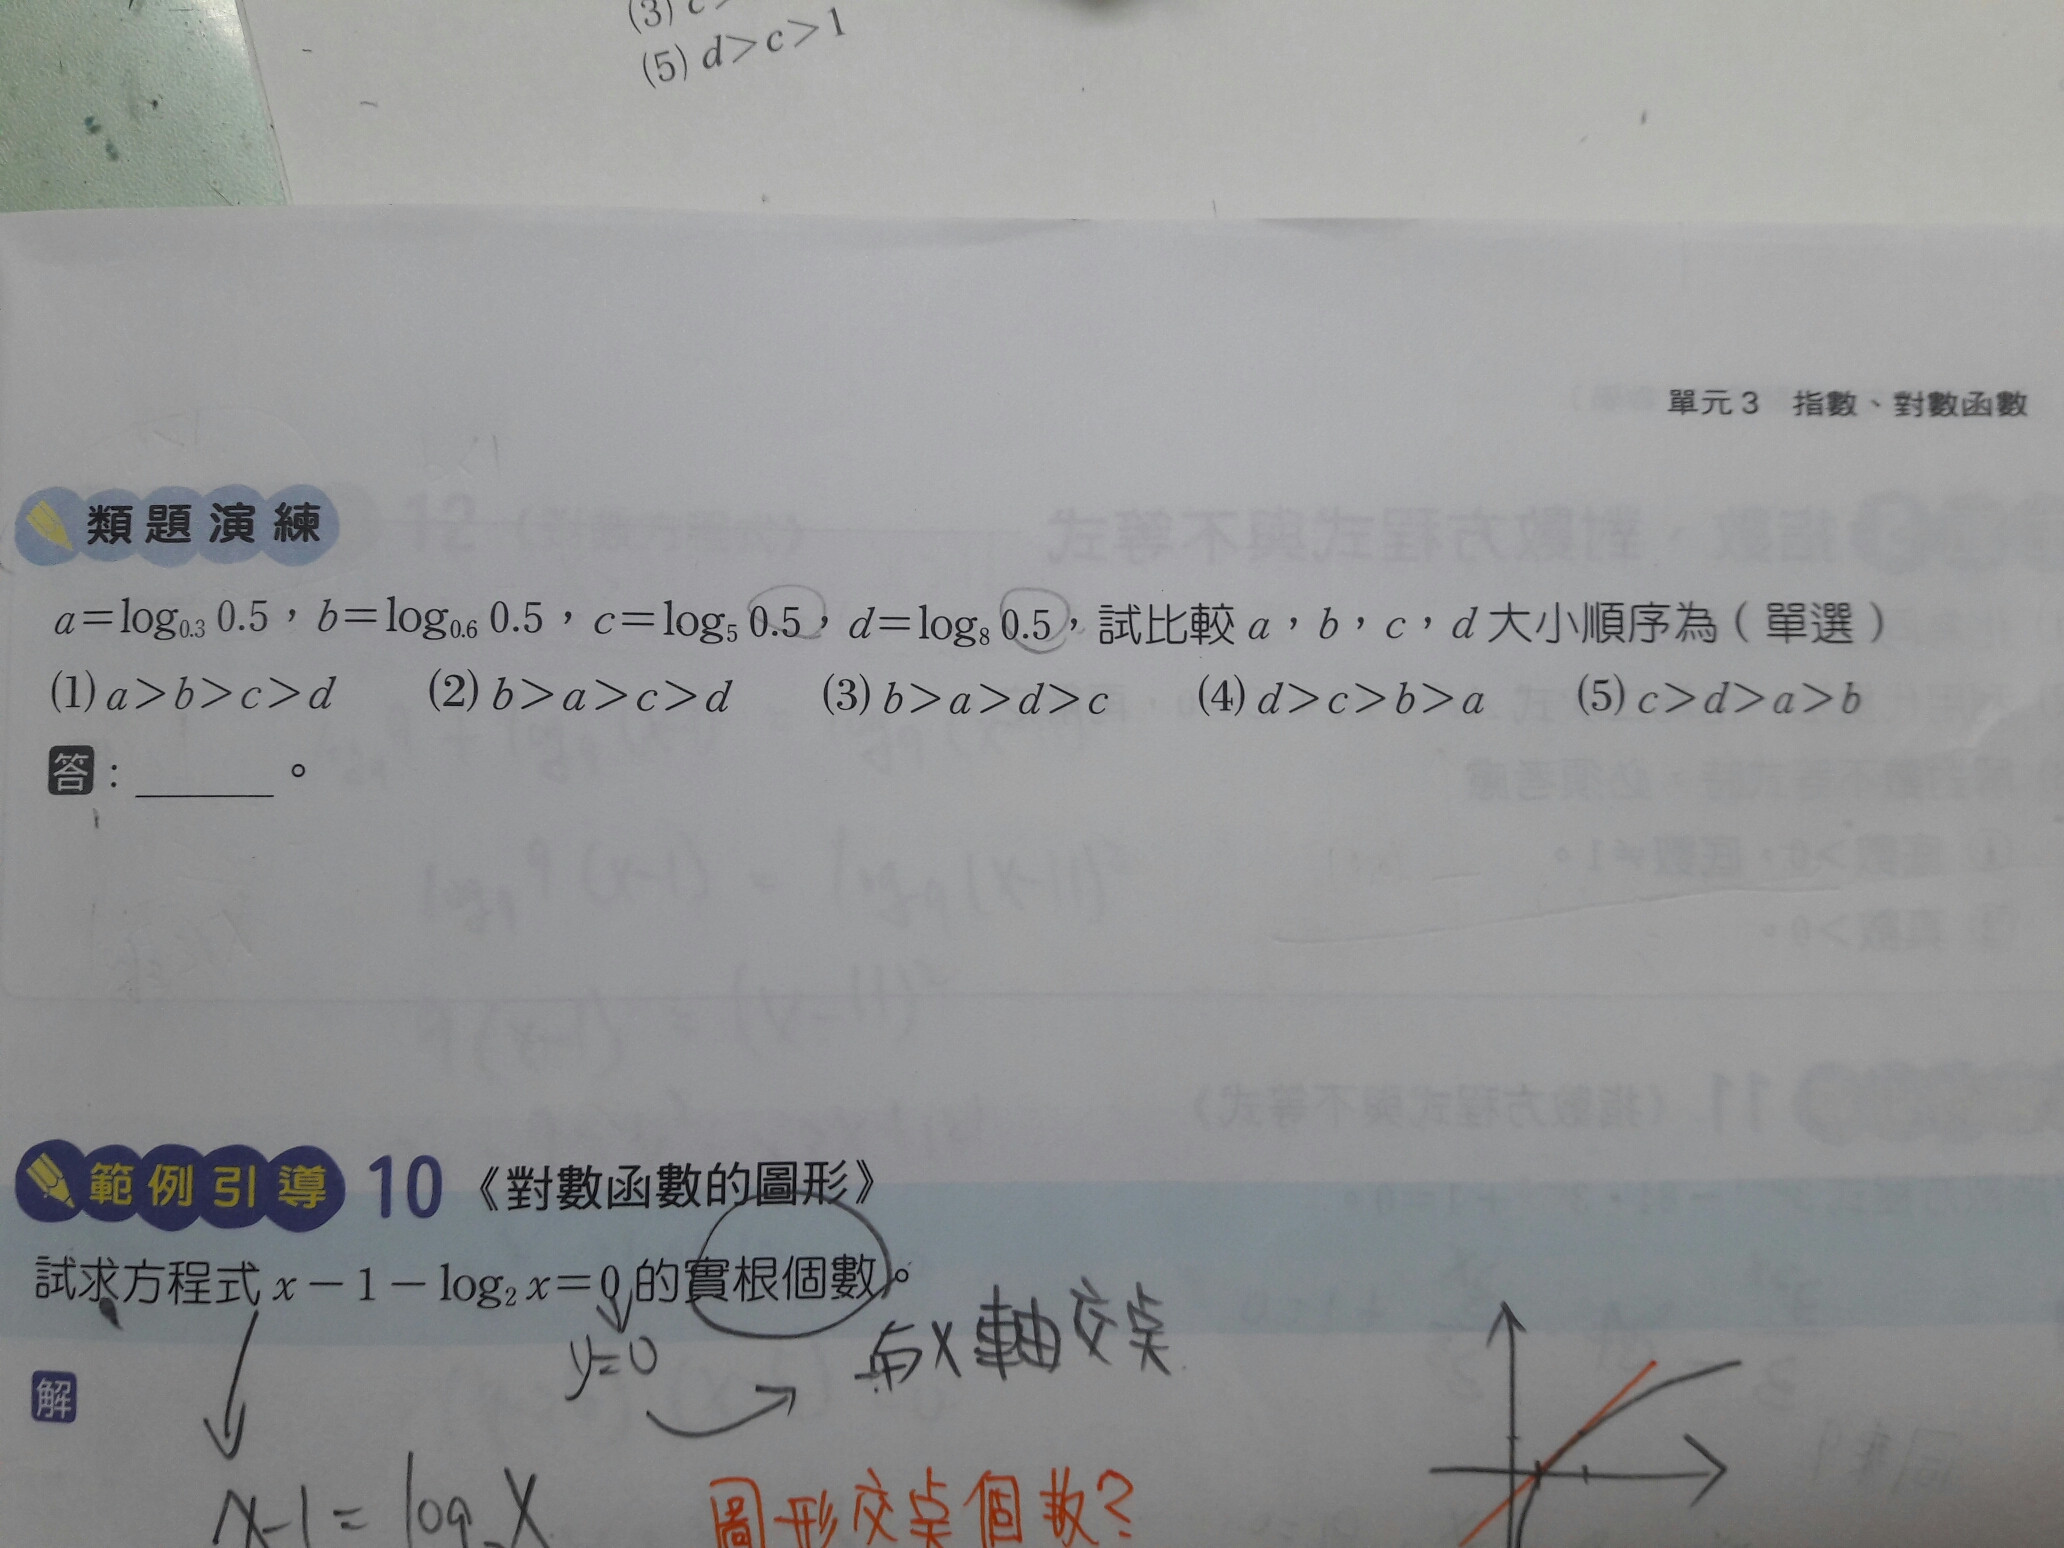 (5) d>c>1
單元 3 指數、對數函數
類題演練
a=log₀.₃ 0.5，b=log₀.₆ 0.5，c=log₅ 0.5，d=log₈ 0.5，試比較 a，b，c，d 大小順序為（單選）
(1) a>b>c>d (2) b>a>c>d (3) b>a>d>c (4) d>c>b>a (5) c>d>a>b
答：______。
範例引導 10 《對數函數的圖形》
試求方程式 x－1－log₂ x=0 的實根個數。
y=0 與X軸交點
解
x-1 = log₂X 圖形交點個數?